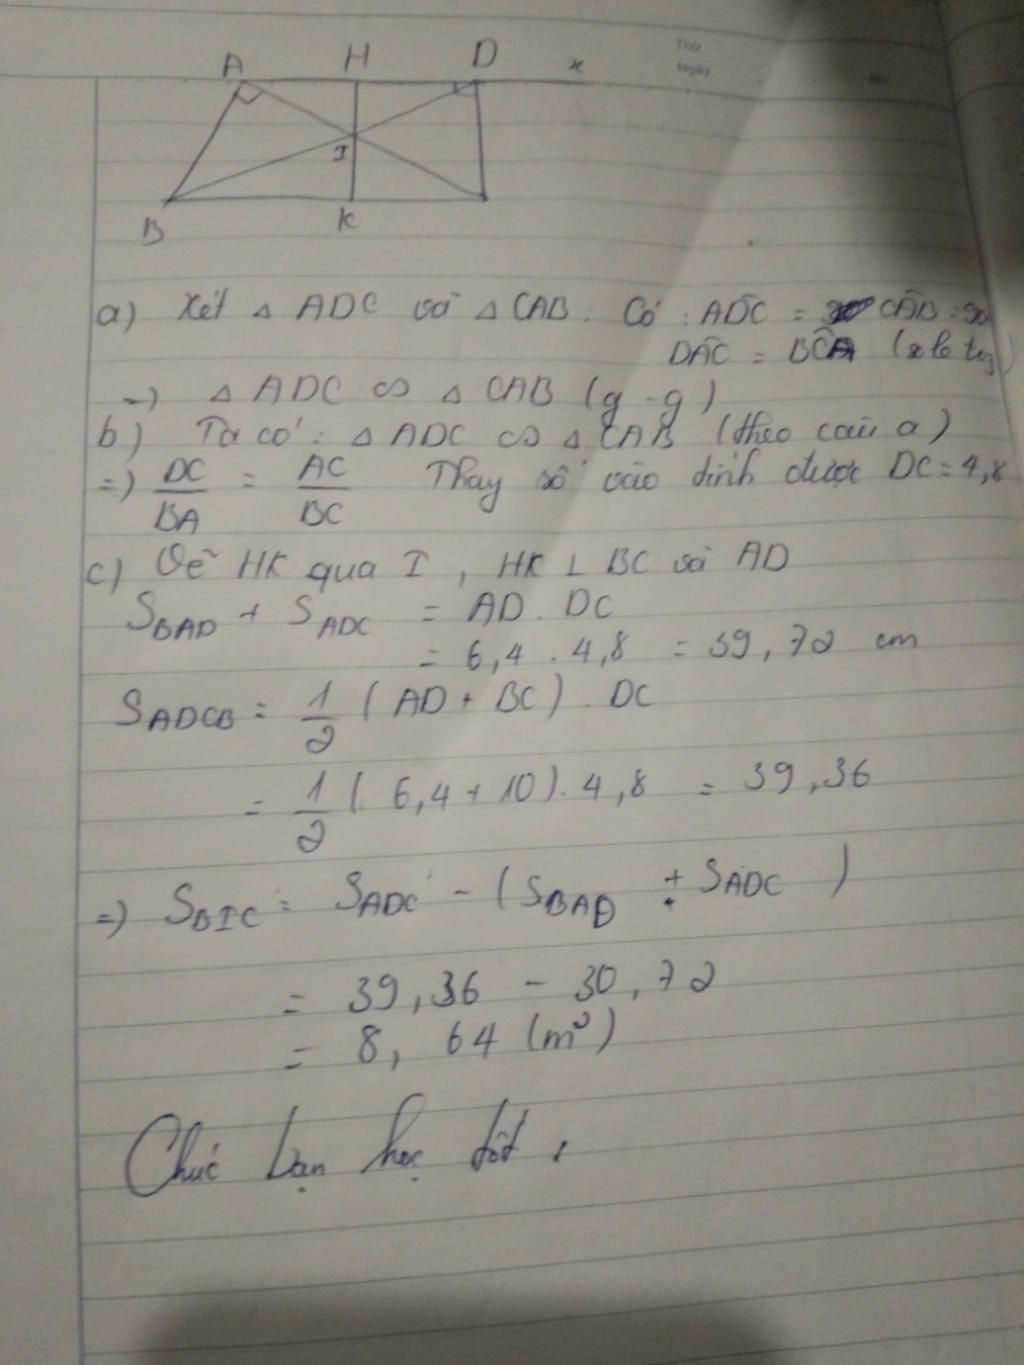 Thứ
Ngày
No
A H D x
I
B K
a) Xét △ ADC và △ CAB : Có : ADC = CAB = 90
DAC = BCA (so le tg)
=) △ ADC ∽ △ CAB (g-g)
b) Ta có : △ ADC ∽ △ CAB (theo câu a)
=) DC/BA = AC/BC Thay số vào tính được DC = 4,8
c) Vẽ HK qua I , HK ⊥ BC và AD
S_BAD + S_ADC = AD . DC
= 6,4 . 4,8 = 39,72 cm
S_ADCB = 1/2 ( AD + BC ) . DC
= 1/2 (. 6,4 + 10 ) . 4,8 = 39,36
=) S_BIC = S_ADC - ( S_BAD + S_ADC )
= 39,36 - 30,72
= 8, 64 (m²)
Chúc bạn học tốt .